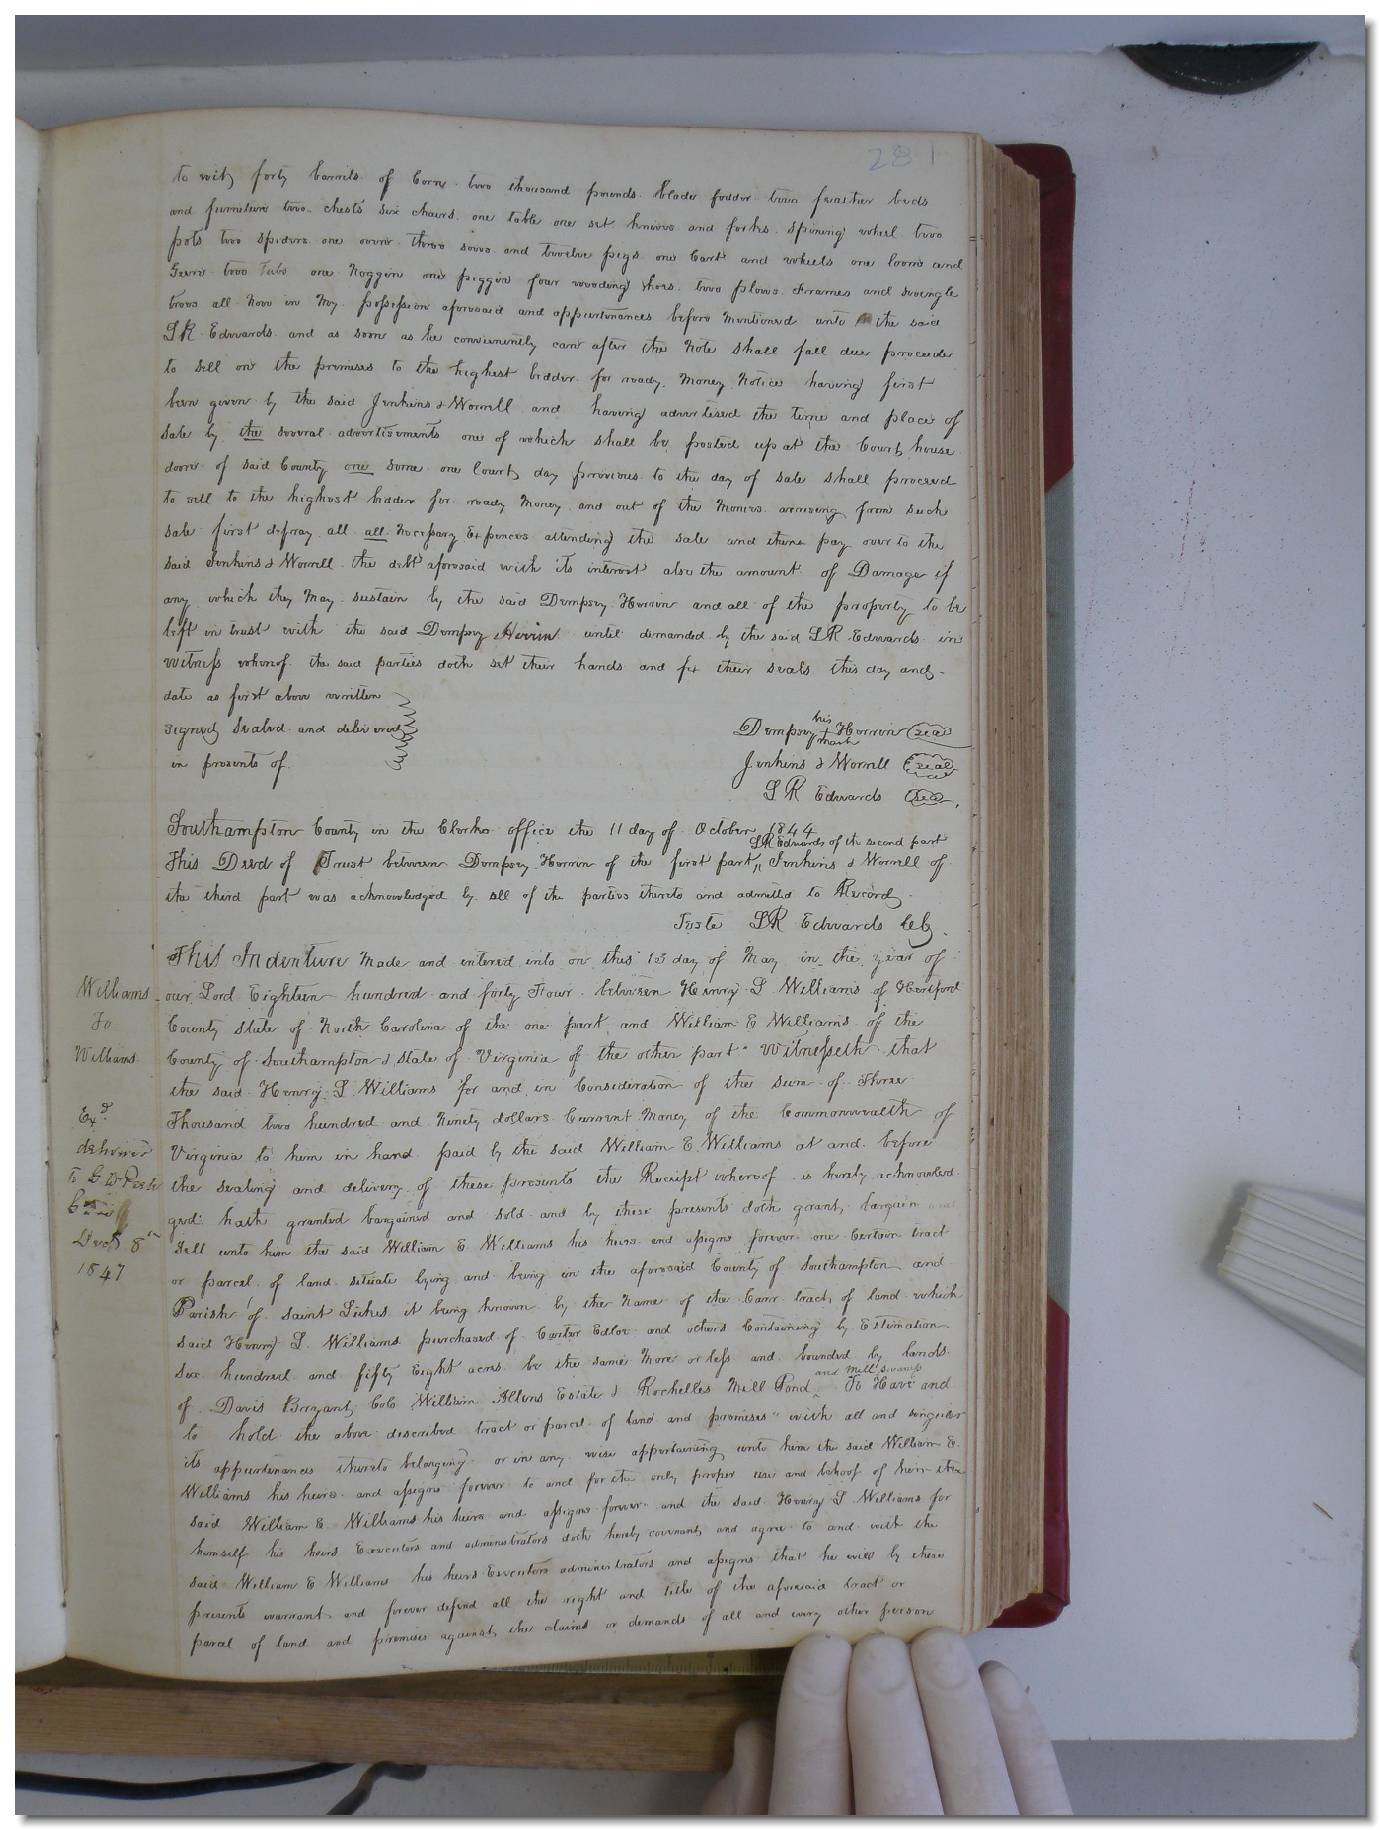 281
to wit, forty barrels of Corn two thousand pounds Blade fodder two feather beds
and furniture two chests six chairs one table one set knives and forks spining wheel two
pots two spiders one oven three sows and twelve pigs one Cart and wheels one loom and
Geer two Tubs one Noggin one piggin four weeding hoes two plows frames and swingle
trees all Now in My possession aforesaid and appurtenances before Mentioned unto the said
L R Edwards and as soon as he conveniently can after the Note shall fall due proceede
to sell on the premises to the highest bidder for ready Money Notice having first
been given by the said Jenkins & Worrell and having advertised the time and place of
sale by the several advertisements one of which shall be posted up at the Court house
door of said County one some one Court day previous to the day of sale shall proceed
to sell to the highest bidder for ready Money and out of the Monies arriseing from such
sale first defray all all Necessary Expences attending the sale and then pay over to the
said Jenkins & Worrell the debt aforesaid with its interest also the amount of Damage if
any which they May sustain by the said Dempsey Herrin and all of the property to be
left in trust with the said Dempsey Herrin until demanded by the said L R Edwards in
Witness whereof the said parties doth set their hands and fx their seals this day and
date as first above written
signed sealed and delivered
in presents of
Dempsey his + mark Herrin seal
Jenkins & Worrell seal
L R Edwards seal
Southampton County in the Clerks office the 11 day of October 1844
L R Edwards of the second part
This Deed of Trust between Dempsey Herrin of the first part, Jenkins & Worrell of
the third part was acknowledged by all of the parties thereto and admitted to Record
Teste L R Edwards Clk
This Indenture Made and entered into on this 13 day of May in the year of
Williams
our Lord Eighteen hundred and forty Four between Henry L Williams of Hertford
To
County State of North Carolina of the one part and William E Williams of the
Williams
County of Southampton & State of Virginia of the other part Witnesseth that
the said Henry L Williams for and in Consideration of the sum of Three
Exd
Thousand two hundred and Ninety dollars Current Money of the Commonwealth of
delivered
Virginia to him in hand paid by the said William E. Williams at and before
To G W
the sealing and delivery of these presents the Receipt whereof is hereby acknowled
ged hath granted bargained and sold and by these presents doth grant, bargain and
Decr 8th
Sell unto him the said William E Williams his heirs and assigns forever one Certain tract
1847
or parcel of land situate lying and being in the aforesaid County of Southampton and
Parish of Saint Lukes it being known by the Name of the Carr tract of land which
said Henry L. Williams purchased of Carter Edloe and others Containing by Estimation
Six hundred and fifty Eight acres be the same More or less and bounded by lands
and Mill swamp
of Davis Bryant, Cobb William Allens Estate & Rochelles Mill Pond To Have and
to hold the above described tract or parcel of land and premises with all and singular
its appurtenances thereto belonging or in any wise appertaining unto him the said William E.
Williams his heirs and assigns forever to and for the only proper use and behoof of him the
said William E Williams his heirs and assigns forever and the said Henry L Williams for
himself his heirs Executors and administrators doth hereby covenant and agree to and with the
said William E Williams his heirs Executors administrators and assigns that he will by these
presents warrant and forever defend all the right and title of the aforesaid tract or
parcel of land and premises against the claims or demands of all and every other person